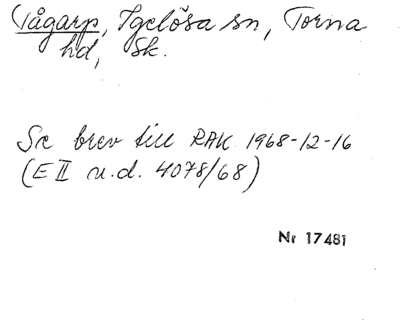 Tågarp, Igelösa sn, Torna
hd, Sk.
Se brev till RAK 1968-12-16
(E II u.d. 4078/68)
Nr 17481